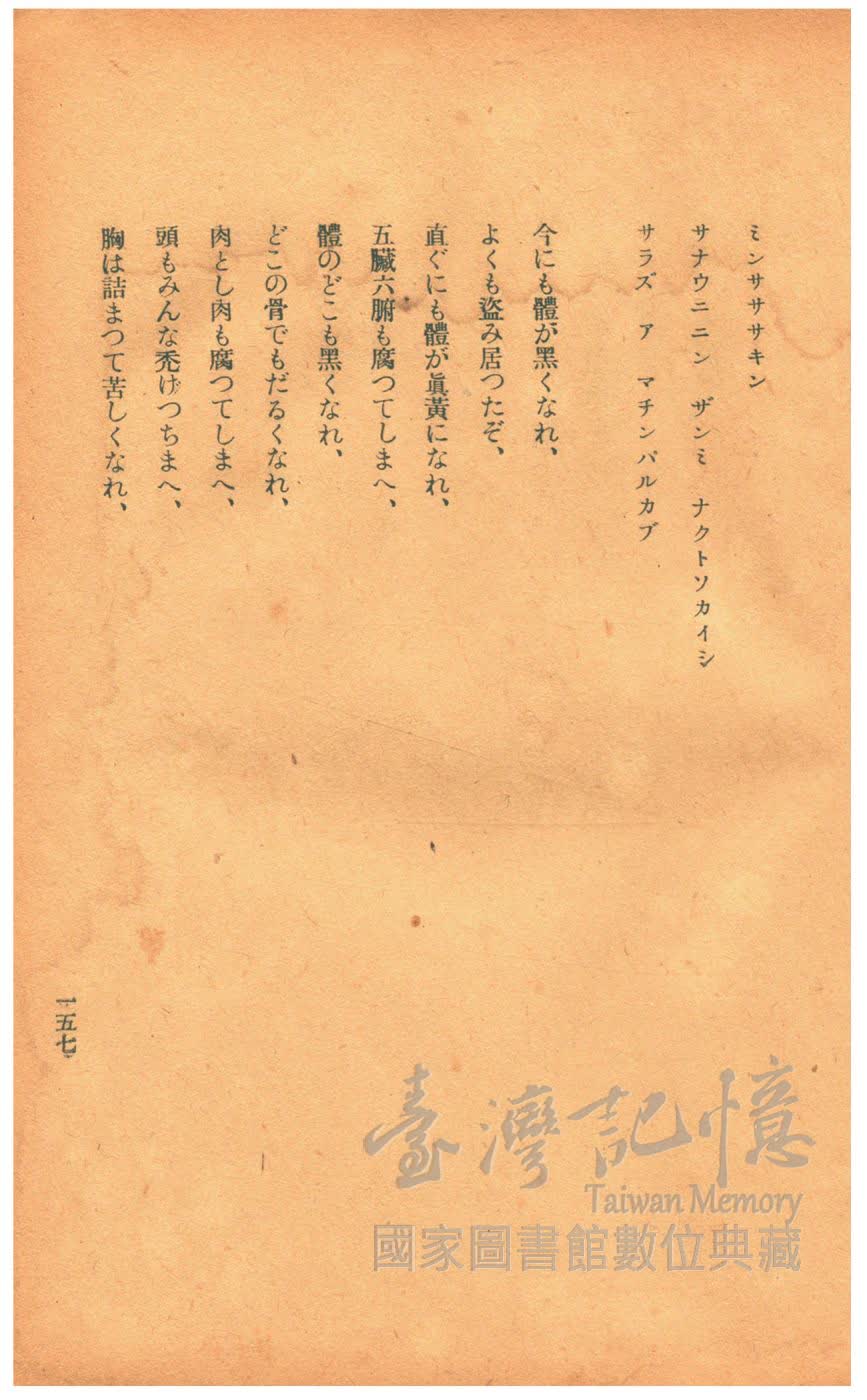 ミンサササキン
サナウニニン ザンミ ナクトソカイシ
サラズ ア マチンパルカブ
今にも體が黑くなれ、
よくも盜み居つたぞ、
直ぐにも體が眞黃になれ、
五臟六腑も腐つてしまへ、
體のどこも黑くなれ、
どこの骨でもだるくなれ、
肉とし肉も腐つてしまへ、
頭もみんな禿げつちまへ、
胸は詰まつて苦しくなれ、
一五七
臺灣記憶
Taiwan Memory
國家圖書館數位典藏